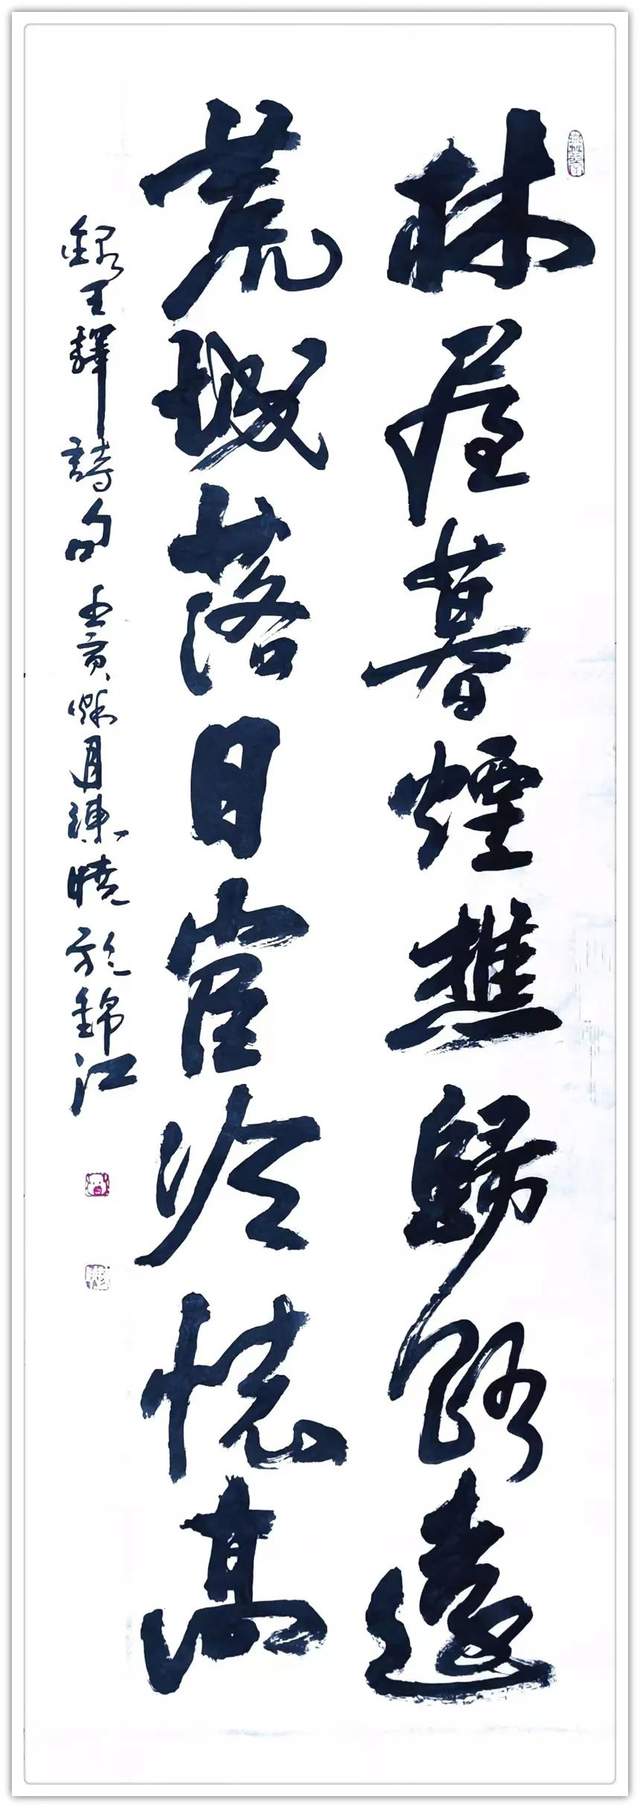 林屋暮煙樵歸路遠
荒城落日宦冷懷高
錄王鐸詩句 壬寅秋月陳曉於錦江